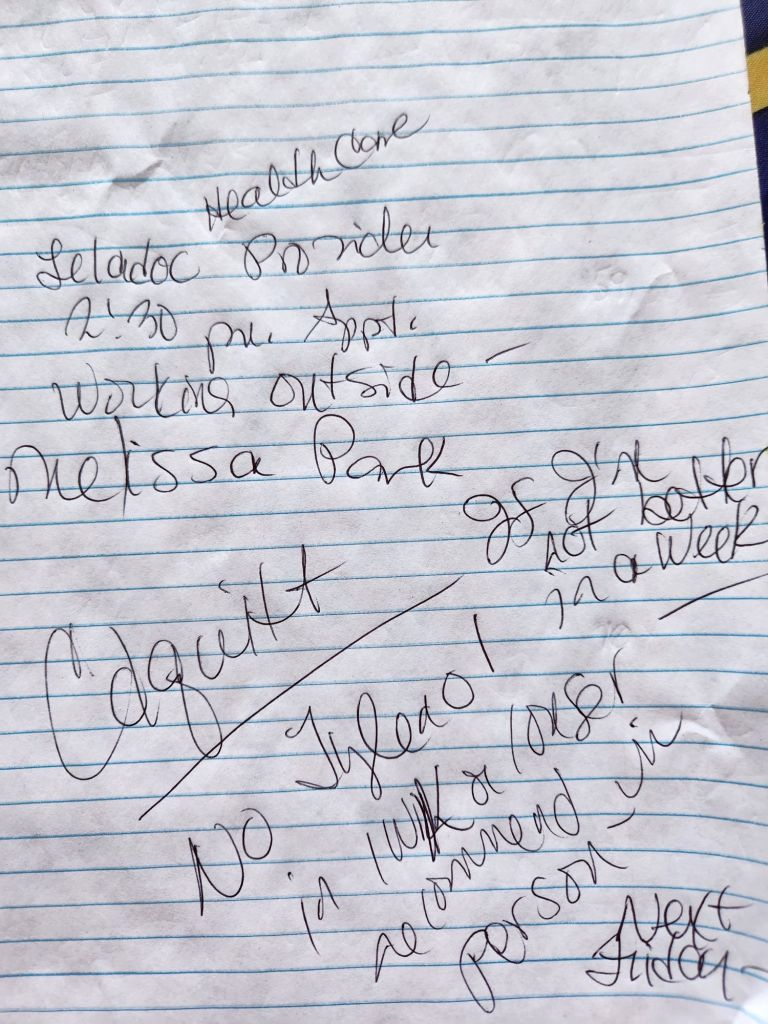 Healthcare
Teladoc Provider
2:30 pm. Appt.
Working outside -
Melissa Park
If I'm
not better
in a week
Tylenol
No
in 1 wk or longer
recommend in
person -
Next
Friday -